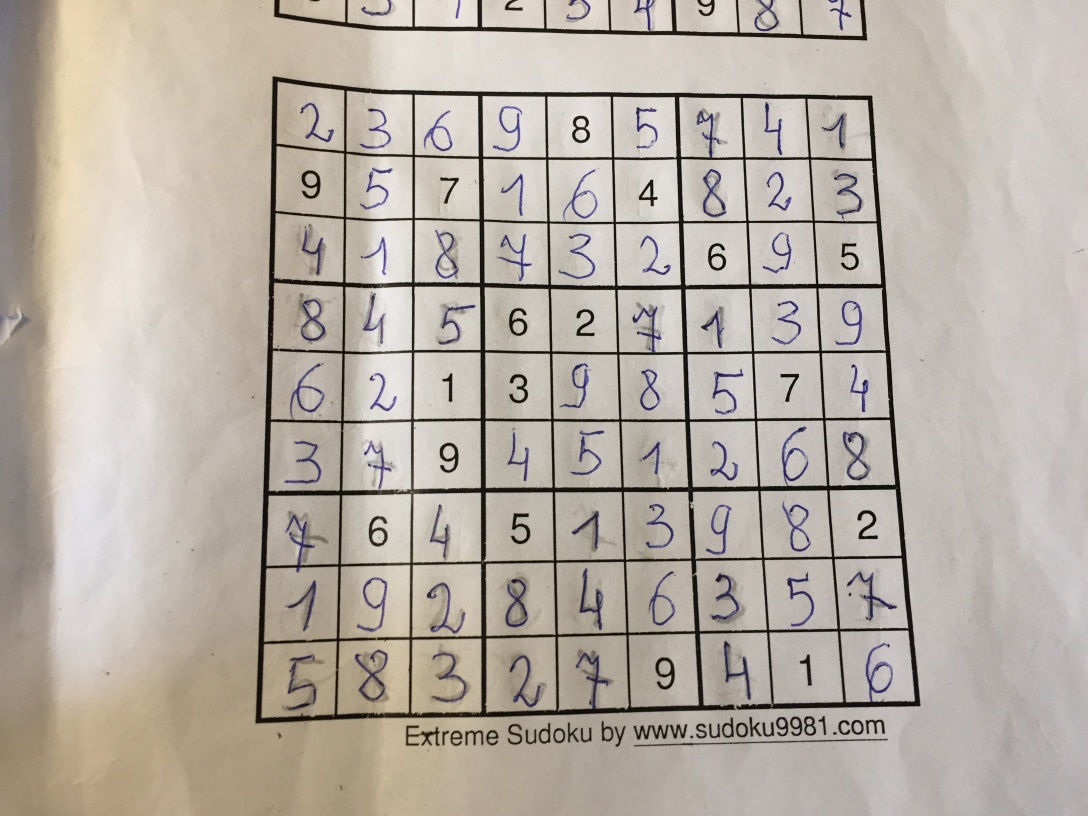 5 1 2 5 4 9 8 7
2 3 6 9 8 5 7 4 1
9 5 7 1 6 4 8 2 3
4 1 8 7 3 2 6 9 5
8 4 5 6 2 7 1 3 9
6 2 1 3 9 8 5 7 4
3 7 9 4 5 1 2 6 8
7 6 4 5 1 3 9 8 2
1 9 2 8 4 6 3 5 7
5 8 3 2 7 9 4 1 6
Extreme Sudoku by www.sudoku9981.com